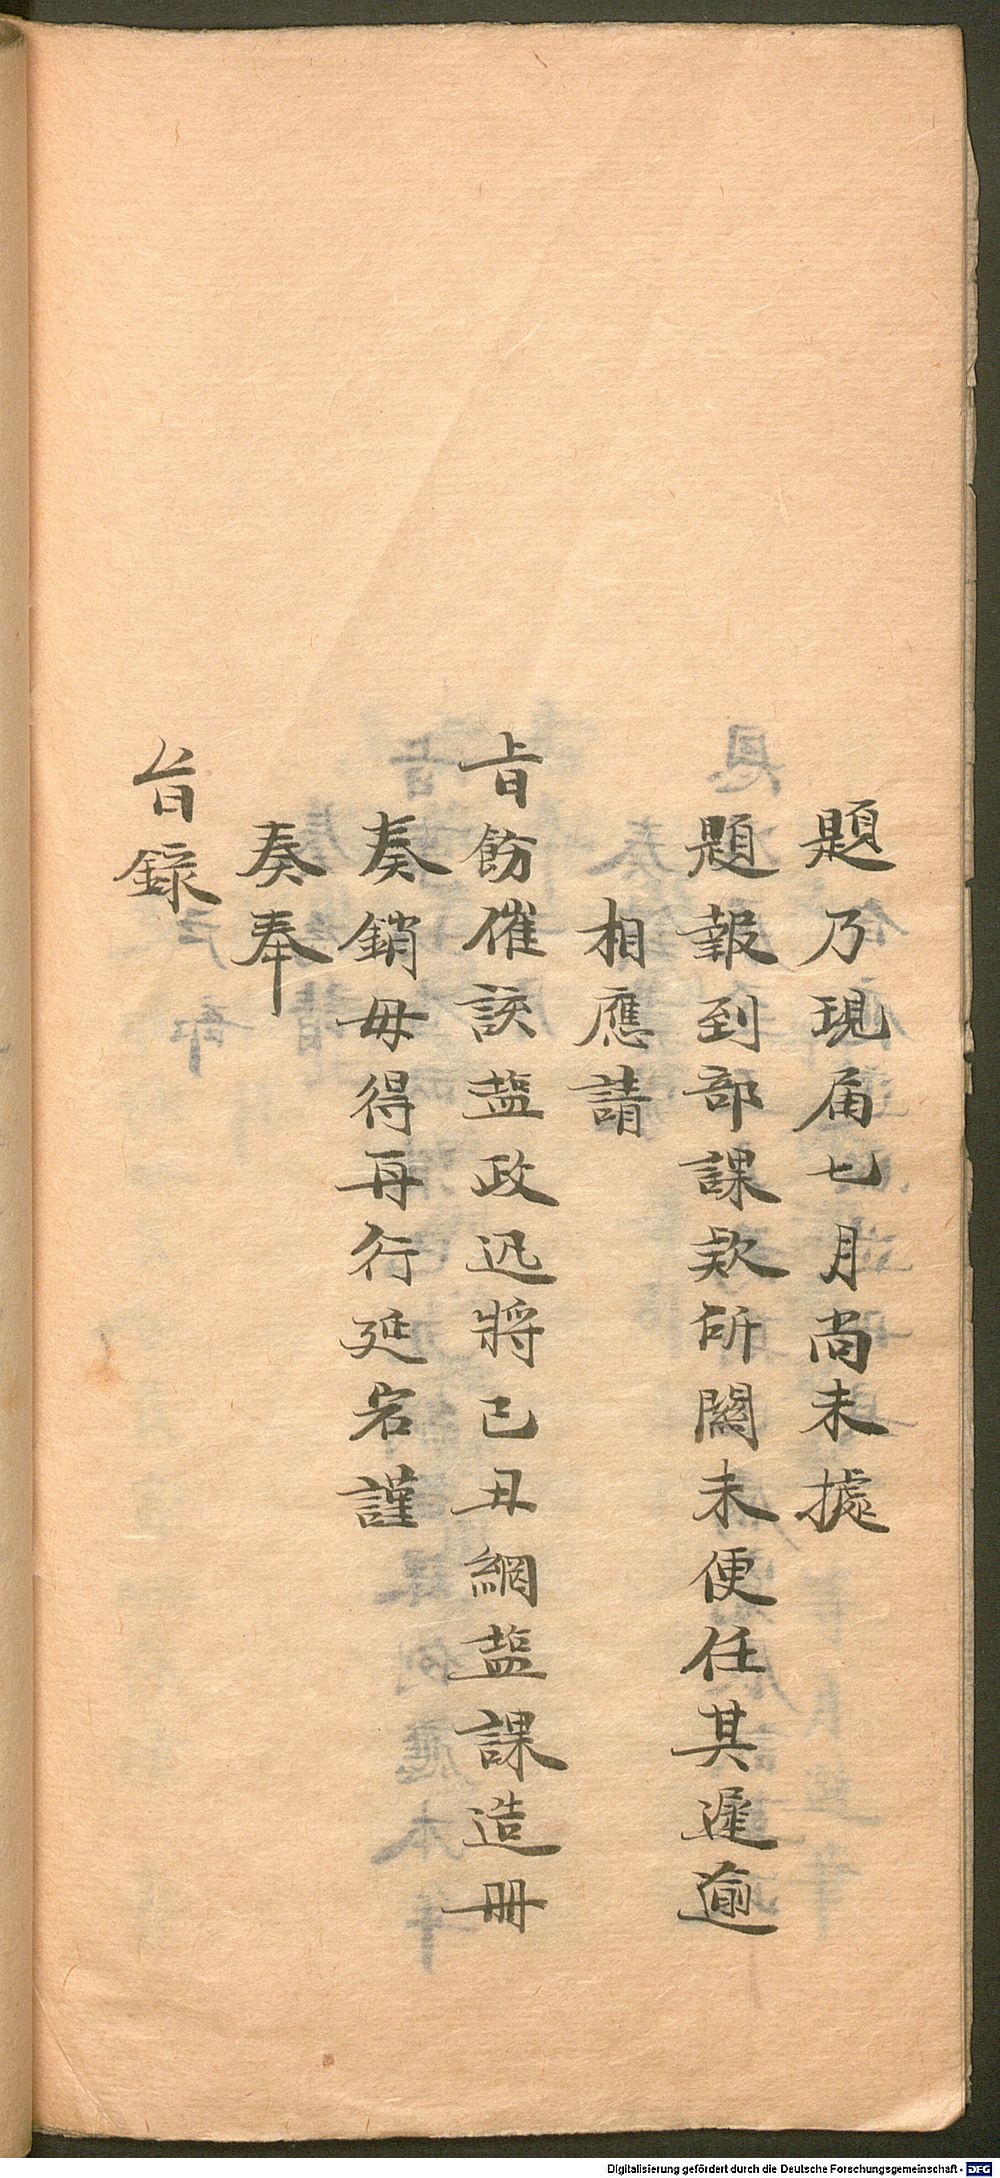 題乃現届七月尚未據
題報到部課款所關未便任其遲逾
相應請
旨飭催該盐政迅將己丑網盐課造册
奏銷毋得再行延宕謹
奏奉
旨錄
Digitalisierung gefördert durch die Deutsche Forschungsgemeinschaft - DFG